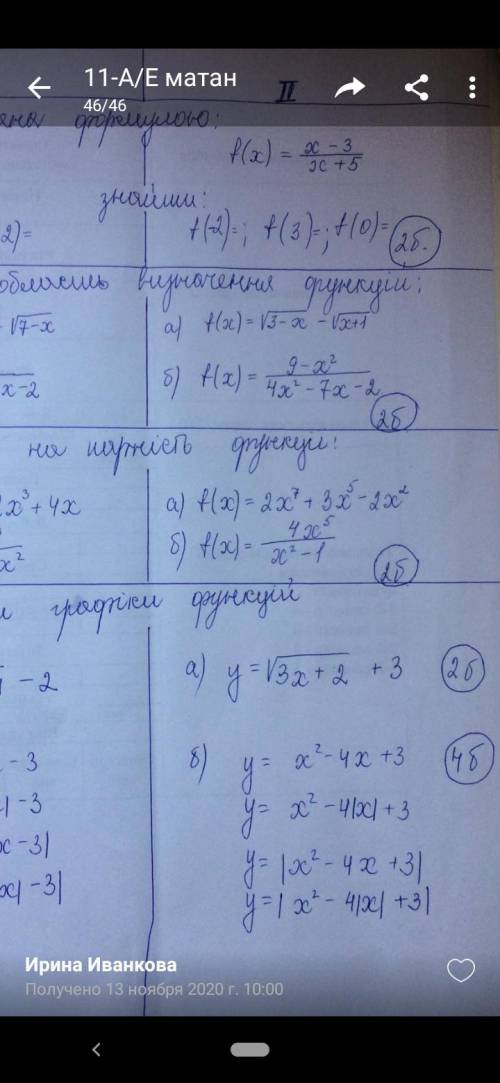 11-А/Е матан
46/46
II
формулою:
f(x) = \frac{x-3}{x+5}
знайти:
2)= f(-2)=; f(3)=; f(0)= 2б.
область визначення функцій;
√7-x а) f(x)=√3-x -√x+1
x-2 б) f(x)= \frac{9-x²}{4x²-7x-2}
2б
на парність функції:
x³+4x а) f(x)=2x⁷+3x⁵-2x²
x² б) f(x)= \frac{4x⁵}{x²-1}
2б
графіки функцій
- 2 а) y=√3x+2 +3 2б
- 3 б) y= x²-4x+3 4б
| -3 y= x²-4|x|+3
x -3| y= |x²-4x+3|
x| -3| y=| x²-4|x| +3|
Ирина Иванкова
Получено 13 ноября 2020 г. 10:00